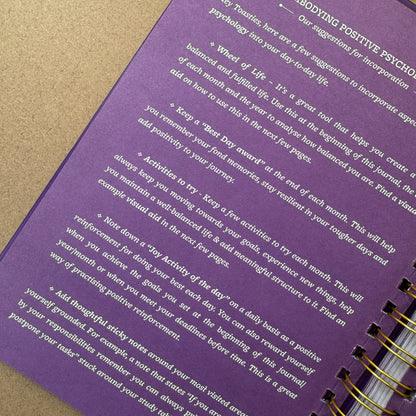 BODYING POSITIVE PSYCHO
Our suggestions for incorporation
ey Toasties, here are a few suggestions to incorporate aspe
psychology into your day-to-day life.
Wheel of Life - It's a great tool that helps you create a
balanced and fulfilled life. Use this at the beginning of this journal, th
of each month and the year to analyse how balanced you are. Find a visu
aid on how to use this in the next few pages.
Keep a "Best Day award" at the end of each month. This will help
you remember your fond memories, stay resilient in your tougher days and
add positivity to your journey.
Activities to try - Keep a few activities to try each month. This will
always keep you moving towards your goals, experience new things, help
you maintain a well-balanced life & add meaningful structure to it. Find an
example visual aid in the next few pages.
Note down a "Joy Activity of the day" on a daily basis as a positive
reinforcement for doing your best each day. You can also reward yourself
when you achieve the goals you set at the beginning of this journal/
year/month or when you meet your deadlines before time. This is a great
way of practising positive reinforcement.
Add thoughtful sticky notes around your most visited aroun
yourself grounded. For example, a note that states "If you are
by your responsibilities remember, you can always pri
postpone your tasks" stuck around your study tab